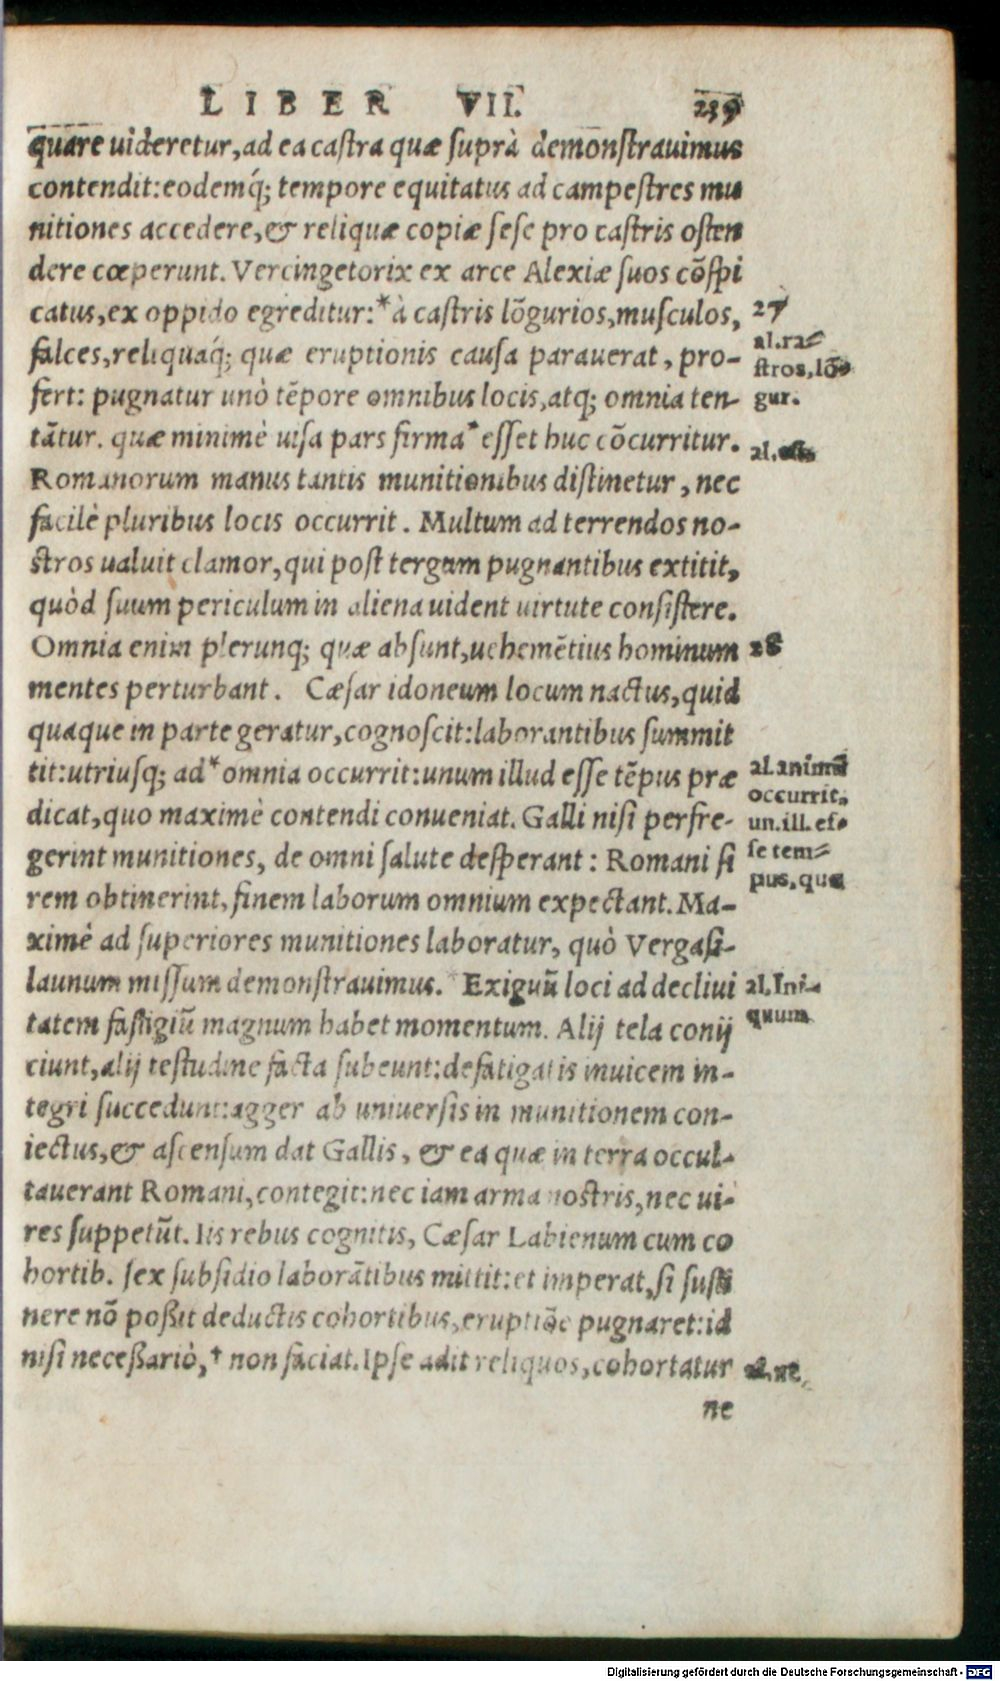 LIBER VII. 239
quare uideretur, ad ea castra quæ suprà demonstrauimus
contendit: eodemq́; tempore equitatus ad campestres mu
nitiones accedere, & reliquæ copiæ sese pro castris osten
dere cœperunt. Vercingetorix ex arce Alexiæ suos cōspi
catus, ex oppido egreditur: * à castris lōgurios, musculos,
falces, reliquaq́; quæ eruptionis causa parauerat, pro-
fert: pugnatur unò tēpore omnibus locis, atq; omnia ten-
tātur. quæ minimè uisa pars firma * esset huc cōcurritur.
Romanorum manus tantis munitionibus distinetur, nec
facilè pluribus locis occurrit. Multum ad terrendos no-
stros ualuit clamor, qui post tergum pugnantibus extitit,
quòd suum periculum in aliena uident uirtute consistere.
Omnia enim plerunq; quæ absunt, uehemētius hominum
mentes perturbant. Cæsar idoneum locum nactus, quid
quaque in parte geratur, cognoscit: laborantibus summit
tit: utriusq; ad * omnia occurrit: unum illud esse tēpus præ
dicat, quo maximè contendi conueniat. Galli nisi perfre-
gerint munitiones, de omni salute desperant: Romani si
rem obtinerint, finem laborum omnium expectant. Ma-
ximè ad superiores munitiones laboratur, quò Vergasi-
launum missum demonstrauimus. * Exiguū loci ad decliui
tatem fastigiū magnum habet momentum. Alij tela conij
ciunt, alij testudine facta subeunt: defatigatis inuicem in-
tegri succedunt: agger ab uniuersis in munitionem con-
iectus, & ascensum dat Gallis, & ea quæ in terra occul-
tauerant Romani, contegit: nec iam arma nostris, nec ui-
res suppetūt. Iis rebus cognitis, Cæsar Labienum cum co
hortib. sex subsidio laborātibus mittit: et imperat, si susti
nere nō poßit deductis cohortibus, eruptiōe pugnaret: id
nisi neceßariò, † non faciat. Ipse adit reliquos, cohortatur
ne
27
al. ra-
stros, lō-
gur.
al.
28
al. animū
occurrit,
un. ill. es-
se tem-
pus, quo
al. Ini-
quum
al. ne
Digitalisierung gefördert durch die Deutsche Forschungsgemeinschaft - DFG